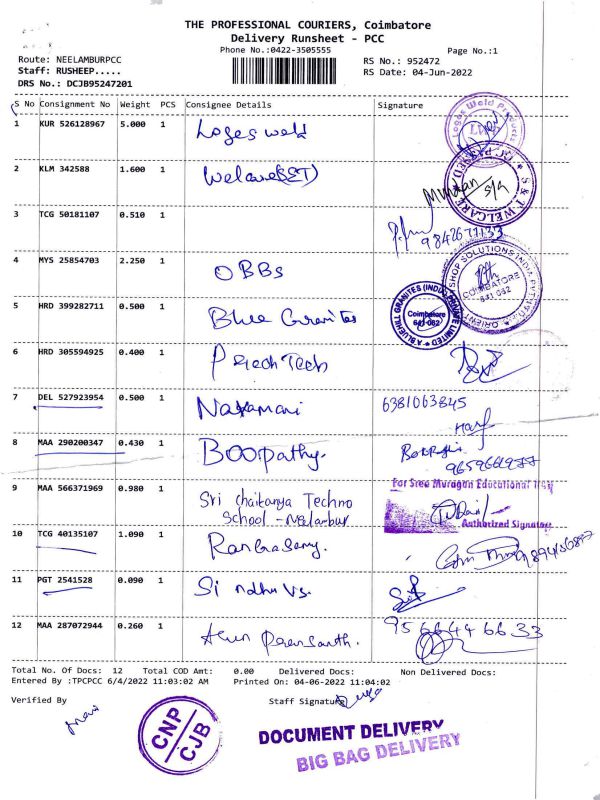 THE PROFESSIONAL COURIERS, Coimbatore
Delivery Runsheet - PCC
Phone No.:0422-3505555
Page No.:1
Route: NEELAMBURPCC
Staff: RUSHEEP.....
DRS No.: DCJB95247201
RS No.: 952472
RS Date: 04-Jun-2022
S No Consignment No Weight PCS Consignee Details Signature
1 KUR 526128967 5.000 1 Loges weld
Logas Weld Products
2 KLM 342588 1.600 1 Welcare(SET)
S & T WELCARE
s/a
3 TCG 50181107 0.510 1
9842671133
4 MYS 25854703 2.250 1 OBBS
SHOP SOLUTIONS INDIA PVT
COIMBATORE
641 062
ORIENT
5 HRD 399282711 0.500 1 Blue Granites
A BLUEHILL GRANITES (INDIA) PRIVATE LIMITED
Coimbatore
641 062
6 HRD 305594925 0.400 1 Tech
7 DEL 527923954 0.500 1 6381063845
8 MAA 290200347 0.430 1 Boopathy.
9659661977
9 MAA 566371969 0.980 1 Sri Chaitanya Techno
School - Neelambur
For Sree Murugan Educational
Authorized Signatory
10 TCG 40135107 1.090 1
11 PGT 2541528 0.090 1 Sindhu Vs.
12 MAA 287072944 0.260 1 Arun
9566446633
Total No. Of Docs: 12 Total COD Amt: 0.00 Delivered Docs: Non Delivered Docs:
Entered By :TPCPCC 6/4/2022 11:03:02 AM Printed On: 04-06-2022 11:04:02
Verified By
Staff Signature
CNP
CJB
DOCUMENT DELIVERY
BIG BAG DELIVERY